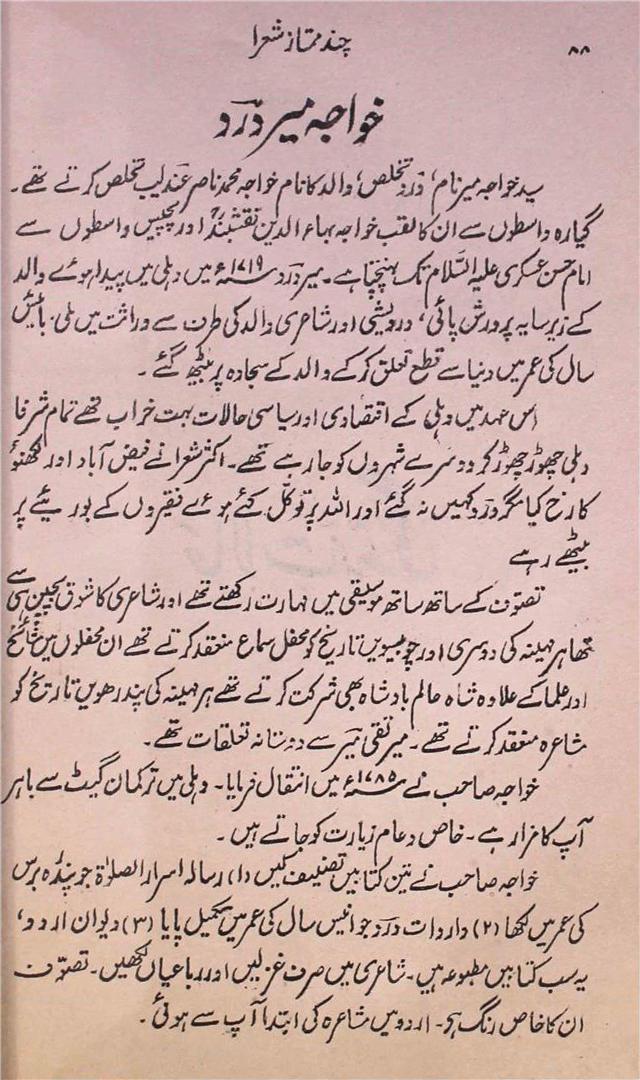 ۸۸ چند ممتاز شعرا
خواجہ میر درد
سید خواجہ میر نام، درد تخلص، والد کا نام خواجہ محمد ناصر عندلیب تخلص کرتے تھے۔
گیارہ واسطوں سے ان کا لقب خواجہ بہاء الدین نقشبندؒ اور پچیس واسطوں سے
امام حسن عسکری علیہ السلام تک پہنچتا ہے۔ میر درد ۱۷۱۹ء میں دہلی میں پیدا ہوئے والد
کے زیر سایہ پرورش پائی، درویشی اور شاعری والد کی طرف سے وراثت میں ملی۔ بائیس
سال کی عمر میں دنیا سے قطع تعلق کر کے والد کے سجادہ پر بیٹھ گئے۔
اس عہد میں دہلی کے اقتصادی اور سیاسی حالات بہت خراب تھے تمام شرفا
دہلی چھوڑ چھوڑ کر دوسرے شہروں کو جا رہے تھے۔ اکثر شعرا نے فیض آباد اور لکھنؤ
کا رخ کیا مگر درد کہیں نہ گئے اور اللہ پر توکل کئے ہوئے فقیروں کے بوریئے پر
بیٹھے رہے
تصوف کے ساتھ ساتھ موسیقی میں مہارت رکھتے تھے اور شاعری کا شوق بچپن ہی سے
تھا ہر مہینہ کی دوسری اور چوبیسویں تاریخ کو محفل سماع منعقد کرتے تھے ان محفلوں میں مشائخ
اور علما کے علاوہ شاہ عالم بادشاہ بھی شرکت کرتے تھے ہر مہینہ کی پندرھویں تاریخ کو
مشاعرہ منعقد کرتے تھے۔ میر تقی میر سے دوستانہ تعلقات تھے۔
خواجہ صاحب نے ۱۷۸۵ء میں انتقال فرمایا۔ دہلی میں ترکمان گیٹ سے باہر
آپ کا مزار ہے۔ خاص و عام زیارت کو جاتے ہیں۔
خواجہ صاحب نے تین کتابیں تصنیف کیں (۱) رسالہ اسرار الصلوٰۃ جو پندرہ برس
کی عمر میں لکھا (۲) واردات درد جو انیس سال کی عمر میں تکمیل پایا (۳) دیوان اردو،
یہ سب کتابیں مطبوعہ ہیں۔ شاعری میں صرف غزلیں اور رباعیاں لکھیں۔ تصوف
ان کا خاص رنگ ہے۔ اردو میں مشاعرہ کی ابتدا آپ سے ہوئی۔